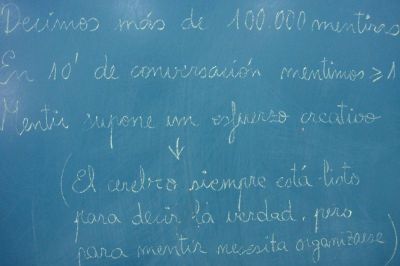 Decimos más de 100.000 mentiras
En 10' de conversación mentimos ≥1
Mentir supone un esfuerzo creativo
↓
(El cerebro siempre está listo
para decir la verdad, pero
para mentir necesita organizarse)